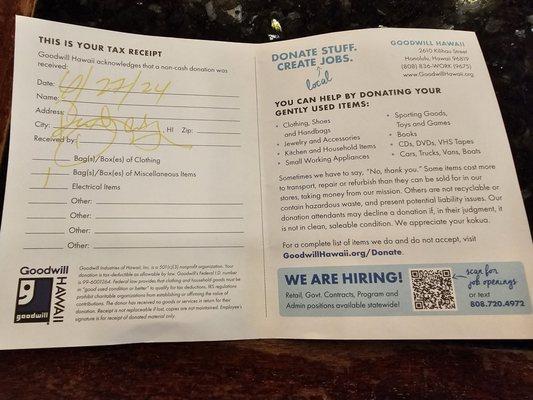 THIS IS YOUR TAX RECEIPT
Goodwill Hawaii acknowledges that a non-cash donation was
received:
Date: 6/22/24
Name:
Address:
City: , HI Zip:
Received by:
Bag(s)/Box(es) of Clothing
1 Bag(s)/Box(es) of Miscellaneous Items
Electrical Items
Other:
Other:
Other:
Other:
Goodwill
HAWAII
goodwill
Goodwill Industries of Hawaii, Inc. is a 501(c)(3) nonprofit organization. Your
donation is tax-deductible as allowable by law. Goodwill's Federal I.D. number
is 99-6001264. Federal law provides that clothing and household goods must be
in "good used condition or better" to qualify for tax deductions. IRS regulations
prohibit charitable organizations from establishing or affirming the value of
contributions. The donor has received no goods or services in return for their
donation. Receipt is not replaceable if lost, copies are not maintained. Employee's
signature is for receipt of donated material only.
DONATE STUFF.
CREATE JOBS.
local
GOODWILL HAWAII
2610 Kilihau Street
Honolulu, Hawaii 96819
(808) 836-WORK (9675)
www.GoodwillHawaii.org
YOU CAN HELP BY DONATING YOUR
GENTLY USED ITEMS:
• Clothing, Shoes
and Handbags
• Jewelry and Accessories
• Kitchen and Household Items
• Small Working Appliances
• Sporting Goods,
Toys and Games
• Books
• CDs, DVDs, VHS Tapes
• Cars, Trucks, Vans, Boats
Sometimes we have to say, "No, thank you." Some items cost more
to transport, repair or refurbish than they can be sold for in our
stores, taking money from our mission. Others are not recyclable or
contain hazardous waste, and present potential liability issues. Our
donation attendants may decline a donation if, in their judgment, it
is not in clean, saleable condition. We appreciate your kokua.
For a complete list of items we do and do not accept, visit
GoodwillHawaii.org/Donate.
WE ARE HIRING!
Retail, Govt. Contracts, Program and
Admin positions available statewide!
scan for
job openings
or text
808.720.4972